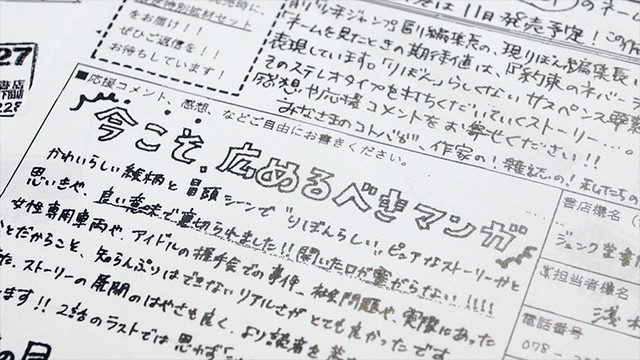 発売時に、
特別拡材セット
をお届け!!
ぜひご返信を!!
お待ちしています!
は11月発売予定!この作
前ジャンプ
副編集長の、現りぼん編集長
ネームを見たときの期待値は、『約束のネバー
表現しています。「りぼんらしくない」サスペンス
そのステレオタイプを打ちくだいていくストーリー…。
感想や応援コメントをお寄せください!!
みなさまのコトバが、作家の!雑誌の!私たちの
27
228
■応援コメント、感想、などご自由にお書きください。
今こそ、広めるべきマンガ
かわいらしい絵柄と冒頭シーンで"りぼんらしい"ピュアなストーリーかと
思いきや、良い意味で裏切られました!!開いた口が塞がらない!!!!
女性専用車両や、アイドルの握手会での事件、社会問題や、実際にあった
ことだからこと、知らんぷりはできないリアルさがとても良かったです。
ストーリーの展開のはやさも良く、より読者を
ます!!2話のラストでは思わず
書店様名
ジュンク堂書
ご担当者様名
浅
電話番号
078